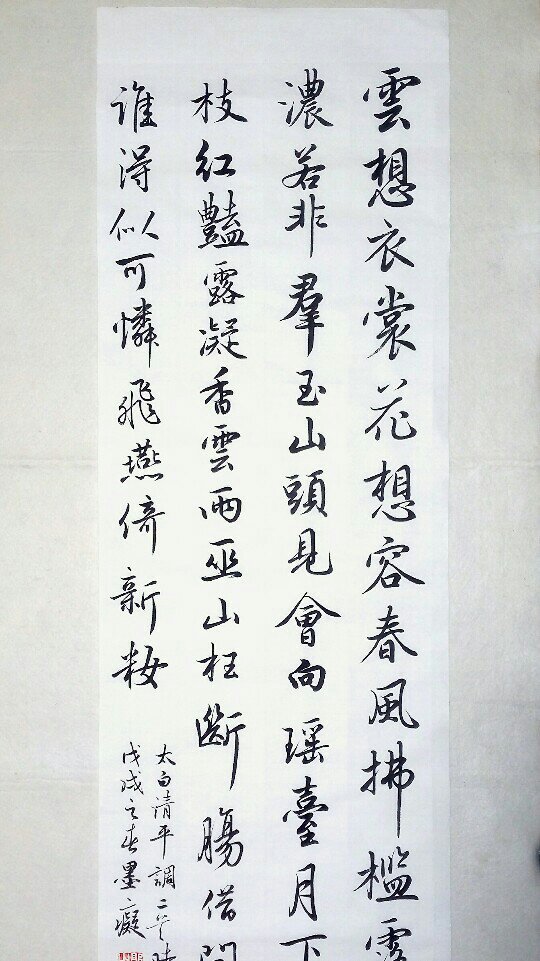 雲想衣裳花想容春風拂檻露
濃若非羣玉山頭見會向瑶臺月下
枝紅豔露凝香雲雨巫山枉斷腸借問
誰得似可憐飛燕倚新妝
太白清平調二首
戊戌之春墨癡